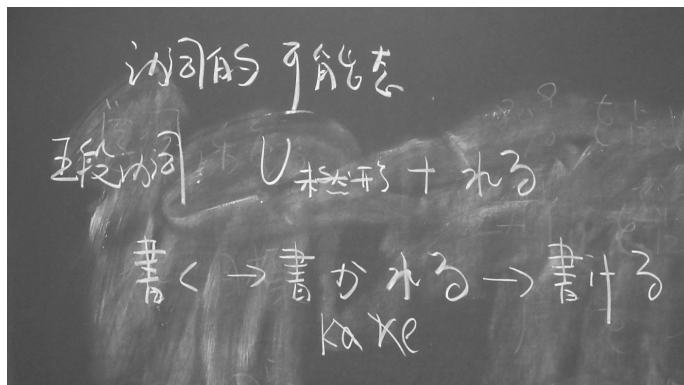 动词的可能态
五段动词 V未然形+れる
書く→書かれる→書ける
kaxe